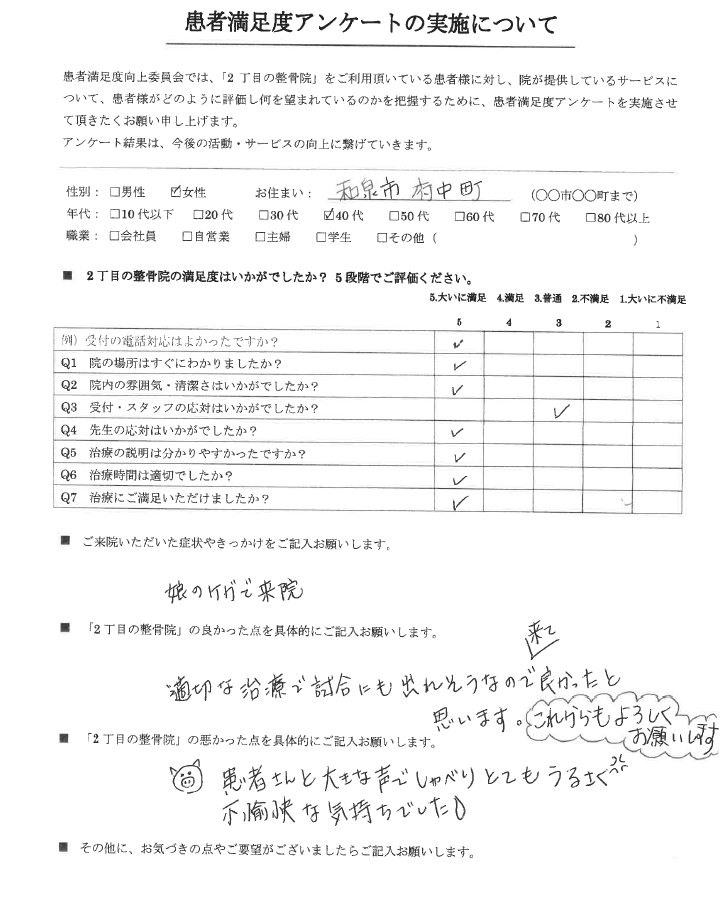 患者満足度アンケートの実施について
患者満足度向上委員会では、「2 丁目の整骨院」をご利用頂いている患者様に対し、院が提供しているサービスに
ついて、患者様がどのように評価し何を望まれているのかを把握するために、患者満足度アンケートを実施させ
て頂きたくお願い申し上げます。
アンケート結果は、今後の活動・サービスの向上に繋げていきます。
性別： □男性 ☑女性 お住まい： 和泉市 府中町 （〇〇市〇〇町まで）
年代： □10 代以下 □20 代 □30 代 ☑40 代 □50 代 □60 代 □70 代 □80 代以上
職業： □会社員 □自営業 □主婦 □学生 □その他（ ）
■ 2丁目の整骨院の満足度はいかがでしたか？ 5 段階でご評価ください。
5.大いに満足 4.満足 3.普通 2.不満足 1.大いに不満足
5 4 3 2 1
例）受付の電話対応はよかったですか？ ✓
Q1 院の場所はすぐにわかりましたか？ ✓
Q2 院内の雰囲気・清潔さはいかがでしたか？ ✓
Q3 受付・スタッフの応対はいかがでしたか？ ✓
Q4 先生の応対はいかがでしたか？ ✓
Q5 治療の説明は分かりやすかったですか？ ✓
Q6 治療時間は適切でしたか？ ✓
Q7 治療にご満足いただけましたか？ ✓
■ ご来院いただいた症状やきっかけをご記入お願いします。
娘のケガで来院
■ 「2丁目の整骨院」の良かった点を具体的にご記入お願いします。
来て
適切な治療で試合にも出れそうなので良かったと
思います。これからもよろしく
お願いします
■ 「2丁目の整骨院」の悪かった点を具体的にご記入お願いします。
患者さんと大きな声でしゃべりとてもうるさく
不愉快な気持ちでした
■ その他に、お気づきの点やご要望がございましたらご記入お願いします。